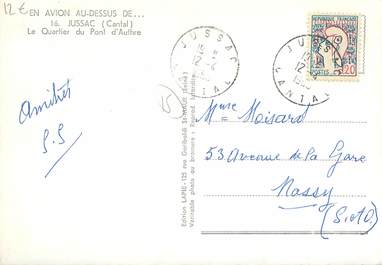 12 €
EN AVION AU-DESSUS DE...
16. JUSSAC (Cantal)
Le Quartier du Pont d'Authre
JUSSAC
12-2
CANTAL
JUSSAC
12
CANTAL
REPUBLIQUE FRANCAISE
POSTES
0,20
15
Amitiés
S.S
Edition LAPIE-125 rue Garibaldi St-MAUR (Seine)
Véritable photo au bromure - Reprod. Interdite
Mme Moisard
53 Avenue de la Gare
Massy
(S.et O)